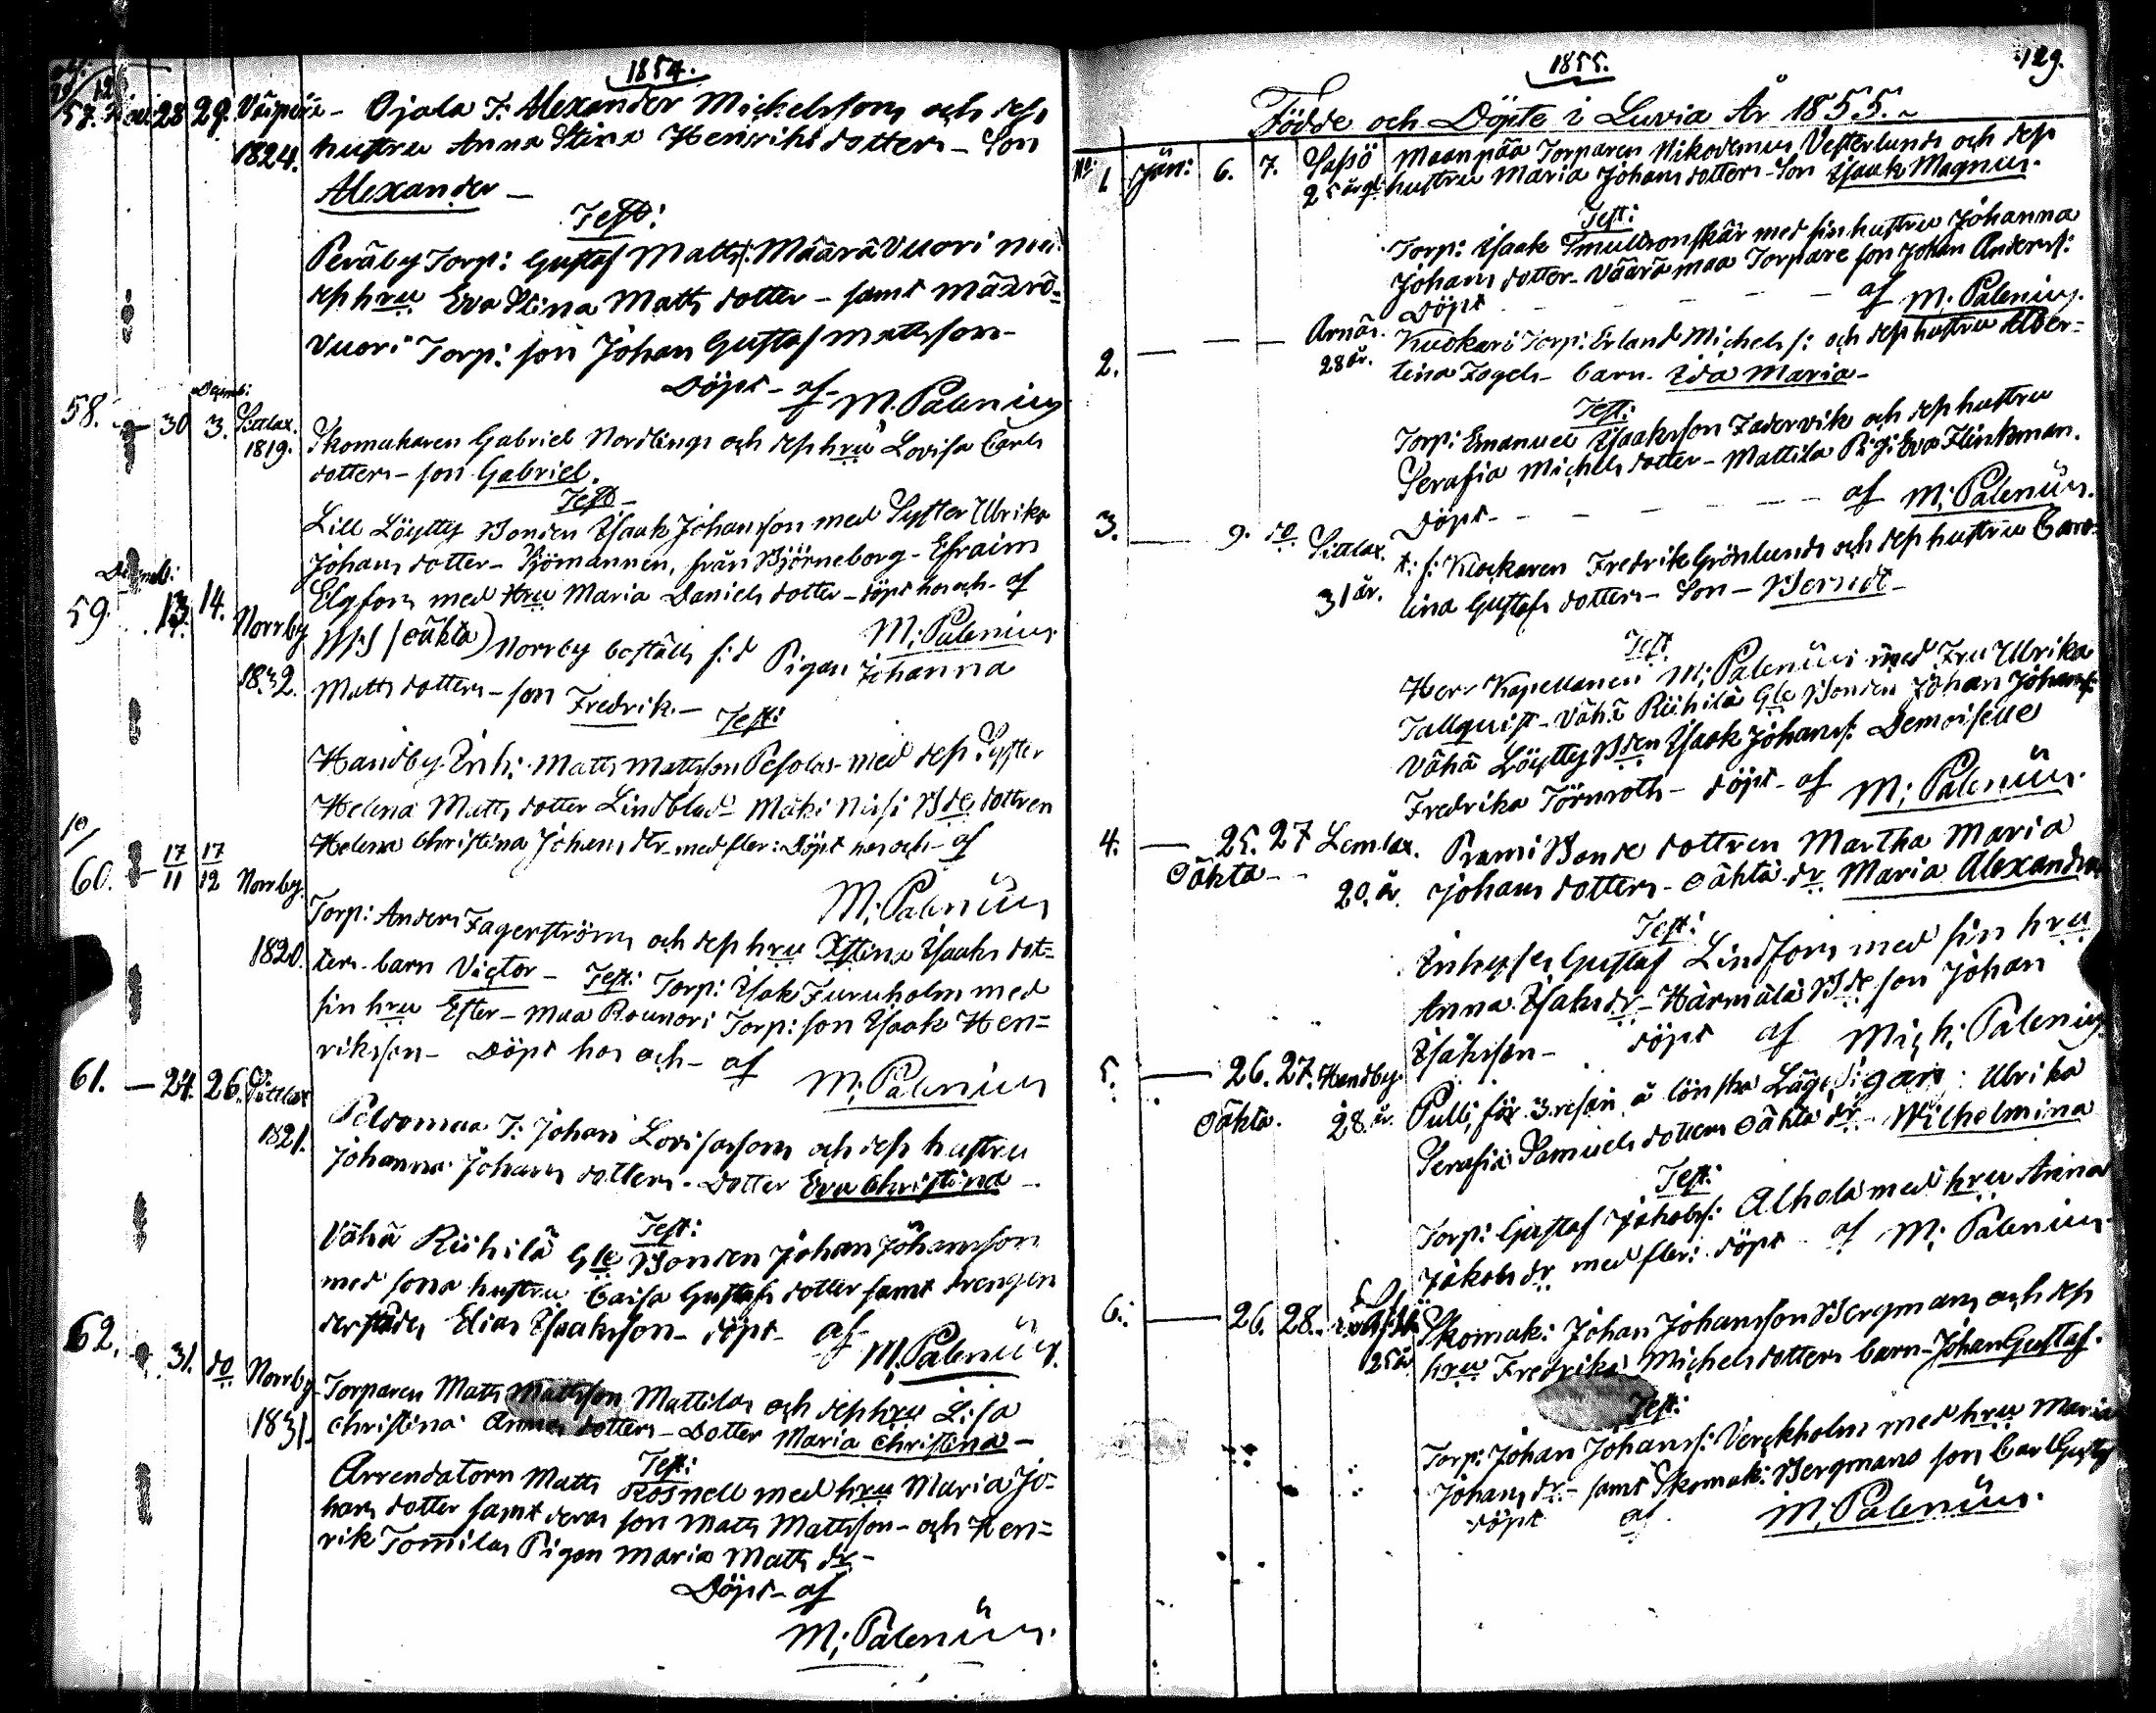 1854.
57. 28 29. Väiperä - Ojala T: Alexander Michelsson och dess
1824. hustru Anna Stina Henriksdotters - Son
Alexander -
Test:
Peräby Torp: Gustaf Matts: Määrävuori med
dess hru Eva Stina Matts dotter - samt Määrä=
vuori Torp: son Johan Gustaf Mattsson -
Döpt - af M. Palenius
58. 30 Decemb: 3. Sittlax. 1819. Skomakaren Gabriel Nordlings och dess hru Lovisa Carls
dotters - son Gabriel.
Test -
Lill Löytty Bonden Isaak Johansson med Syster Ulrika
Johans dotter - Sjömannen, från Björneborg - Efraim
Elgfors med Hru Maria Daniels dotter - döpt hos och - af
M: Palenius
59. Decemb: 13. 14. Norrby (oäkta) Norrby boställs Pigan Johanna
1832. Matts dotters - son Fredrik. -
Test:
Handby Enk: Matts Mattsson Pesolas med dess Syster
Helena Matts dotter Lindblad - Mäki Nissi Bde dottren
Helena Christina Johans dtr - med fler: Döpt hos och - af
M: Palenius
60. 17/11 17/12 Norrby. Torp: Anders Fagerströms och dess hru Stina Isaaks dot=
1820. ters barn Victor - Test: Torp: Isak Furuholm med
sin hru Ester - Maa Rounori Torp: son Isaak Hen=
riksson - Döpt hos och - af
M: Palenius
61. - 24. 26. Sittlax Peldomaa T: Johan Lovisassons och dess hustru
1821. Johanna Johans dotters - Dotter Eva Christina -
Test:
Vähä Riihilä Gle Bonden Johan Johansson
med sona hustru Caisa Gustafs dotter samt drengen
derstädes Elias Isaaksson - döpt - af
M. Palenius.
62. 31. do Norrby Torparen Matts Mattsson Mattilas och dess hru Lisa
1831. Christina Anna dotters - Dotter Maria Christina -
Test:
Arrendatorn Matts Rosnell med hru Maria Jo-
hans dotter samt deras son Matts Mattsson - och Hen=
rik Tomilas Pigan Maria Matts dr -
Döpt - af
M: Palenius.
1855.
129.
Födde och Döpte i Luvia År 1855. ~
No: 1. Jän: 6. 7. Sassö Maanpää Torparen Nikodemus Vesterlunds och dess
25 årg: hustru Maria Johans dotters - Son Isaak Magnus.
Test:
Torp: Isaak Smultronskär med sin hustru Johanna
Johans dotter - Väärämaa Torpare son Johan Anderss:
Döpt - af M. Palenius.
2. Arnäs. Kuokari Torp: Erland Michels s: och dess hustru Alber=
28 år. tina Fagels - barn - Ida Maria -
Test:
Torp: Emanuel Isaaksson Fadervik och dess hustru
Serafia Michels dotter - Mattila Pig: Eva Flinkman.
Döpt - af M: Palenius.
3. 9. do Sittlax. t: f: Klockaren Fredrik Grönlunds och dess hustru Caro=
31 år. lina Gustafs dotters - Son - Berndt -
Test
Herr Kapellanen M: Palenius med Fru Ulrika
Tallquist - Vähä Riihilä Gle Bonden Johan Johanss:
Vähä Löytty Bden Isaak Johanss: Demoiselle
Fredrika Törnroth - döpt - af M: Palenius.
4. - 25. 27 Lemlax. Prami Bonde dottren Martha Maria
Oäkta - 20. år. Johans dotters - oäkta dr Maria Alexandra
Test:
Gustaf Lindfors med sin hru
Anna Isaks dr - Härmälä Bde son Johan
Isaksson - döpt af Mich: Palenius
5. 26. 27. Handby. Pulli, för 3 resan å lönska Läge Pigan Ulrika
Oäkta. 28. år. Serafia Samuels dotters oäkta dr - Wilhelmina
Test:
Torp: Gustaf Jakobs: Alhola med hru Anna
Jakobs dr med fler: döpt af M: Palenius
6. 26. 28. Skomak: Johan Johansson Bergmans och dess
25 år hru Fredrika Michels dotters barn - Johan Gustaf.
Test:
Torp: Johan Johanss: Verckholm med hru Maria
Johans dr - samt Skomak: Bergmans son Carl Gustaf
döpt af M. Palenius.